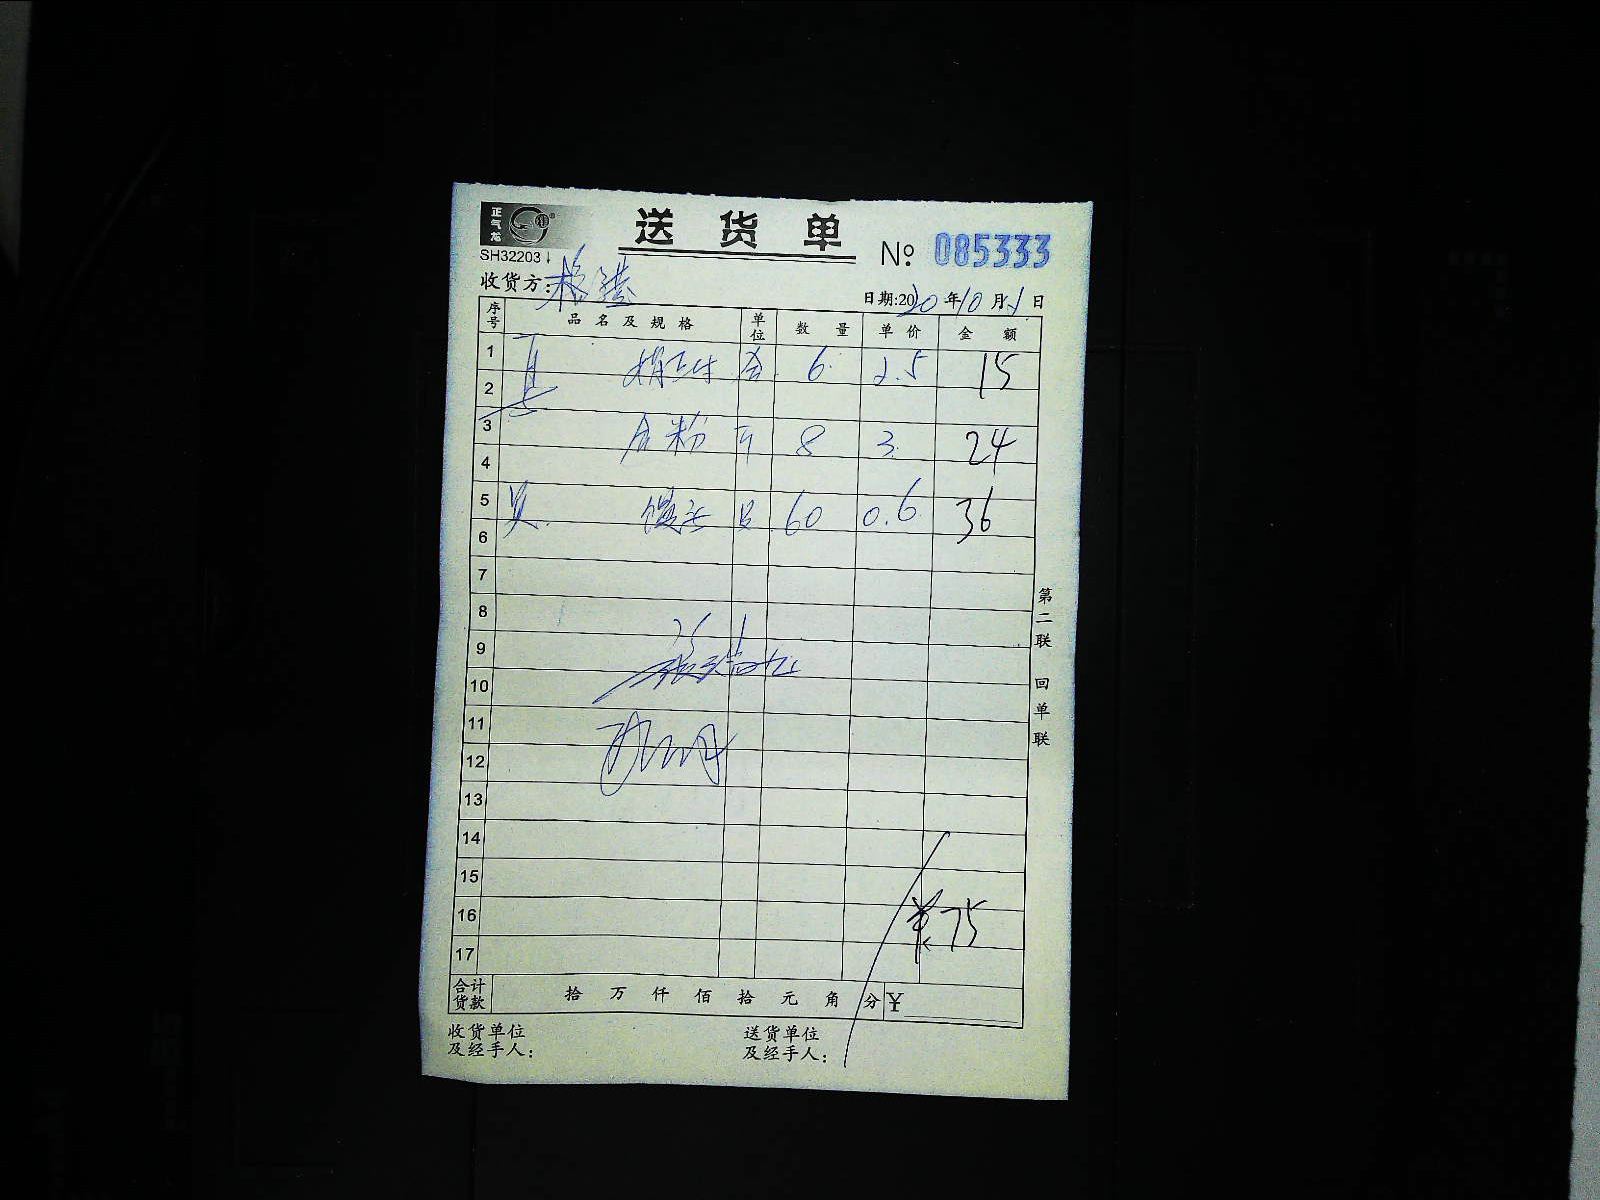 正气龙
送货单
№ 085333
SH32203
收货方：格
日期:2020年10月1日
序号 品名及规格 单位 数量 单价 金额
1 6 2.5 15
2
3 粉 8 3 24
4
5 馒头 只 60 0.6 36
6
7
8
9
10
11
12
13
14
15
16 ¥75
17
合计货款 拾 万 仟 佰 拾 元 角 分 ¥
收货单位及经手人：
送货单位及经手人：
第二联 回单联